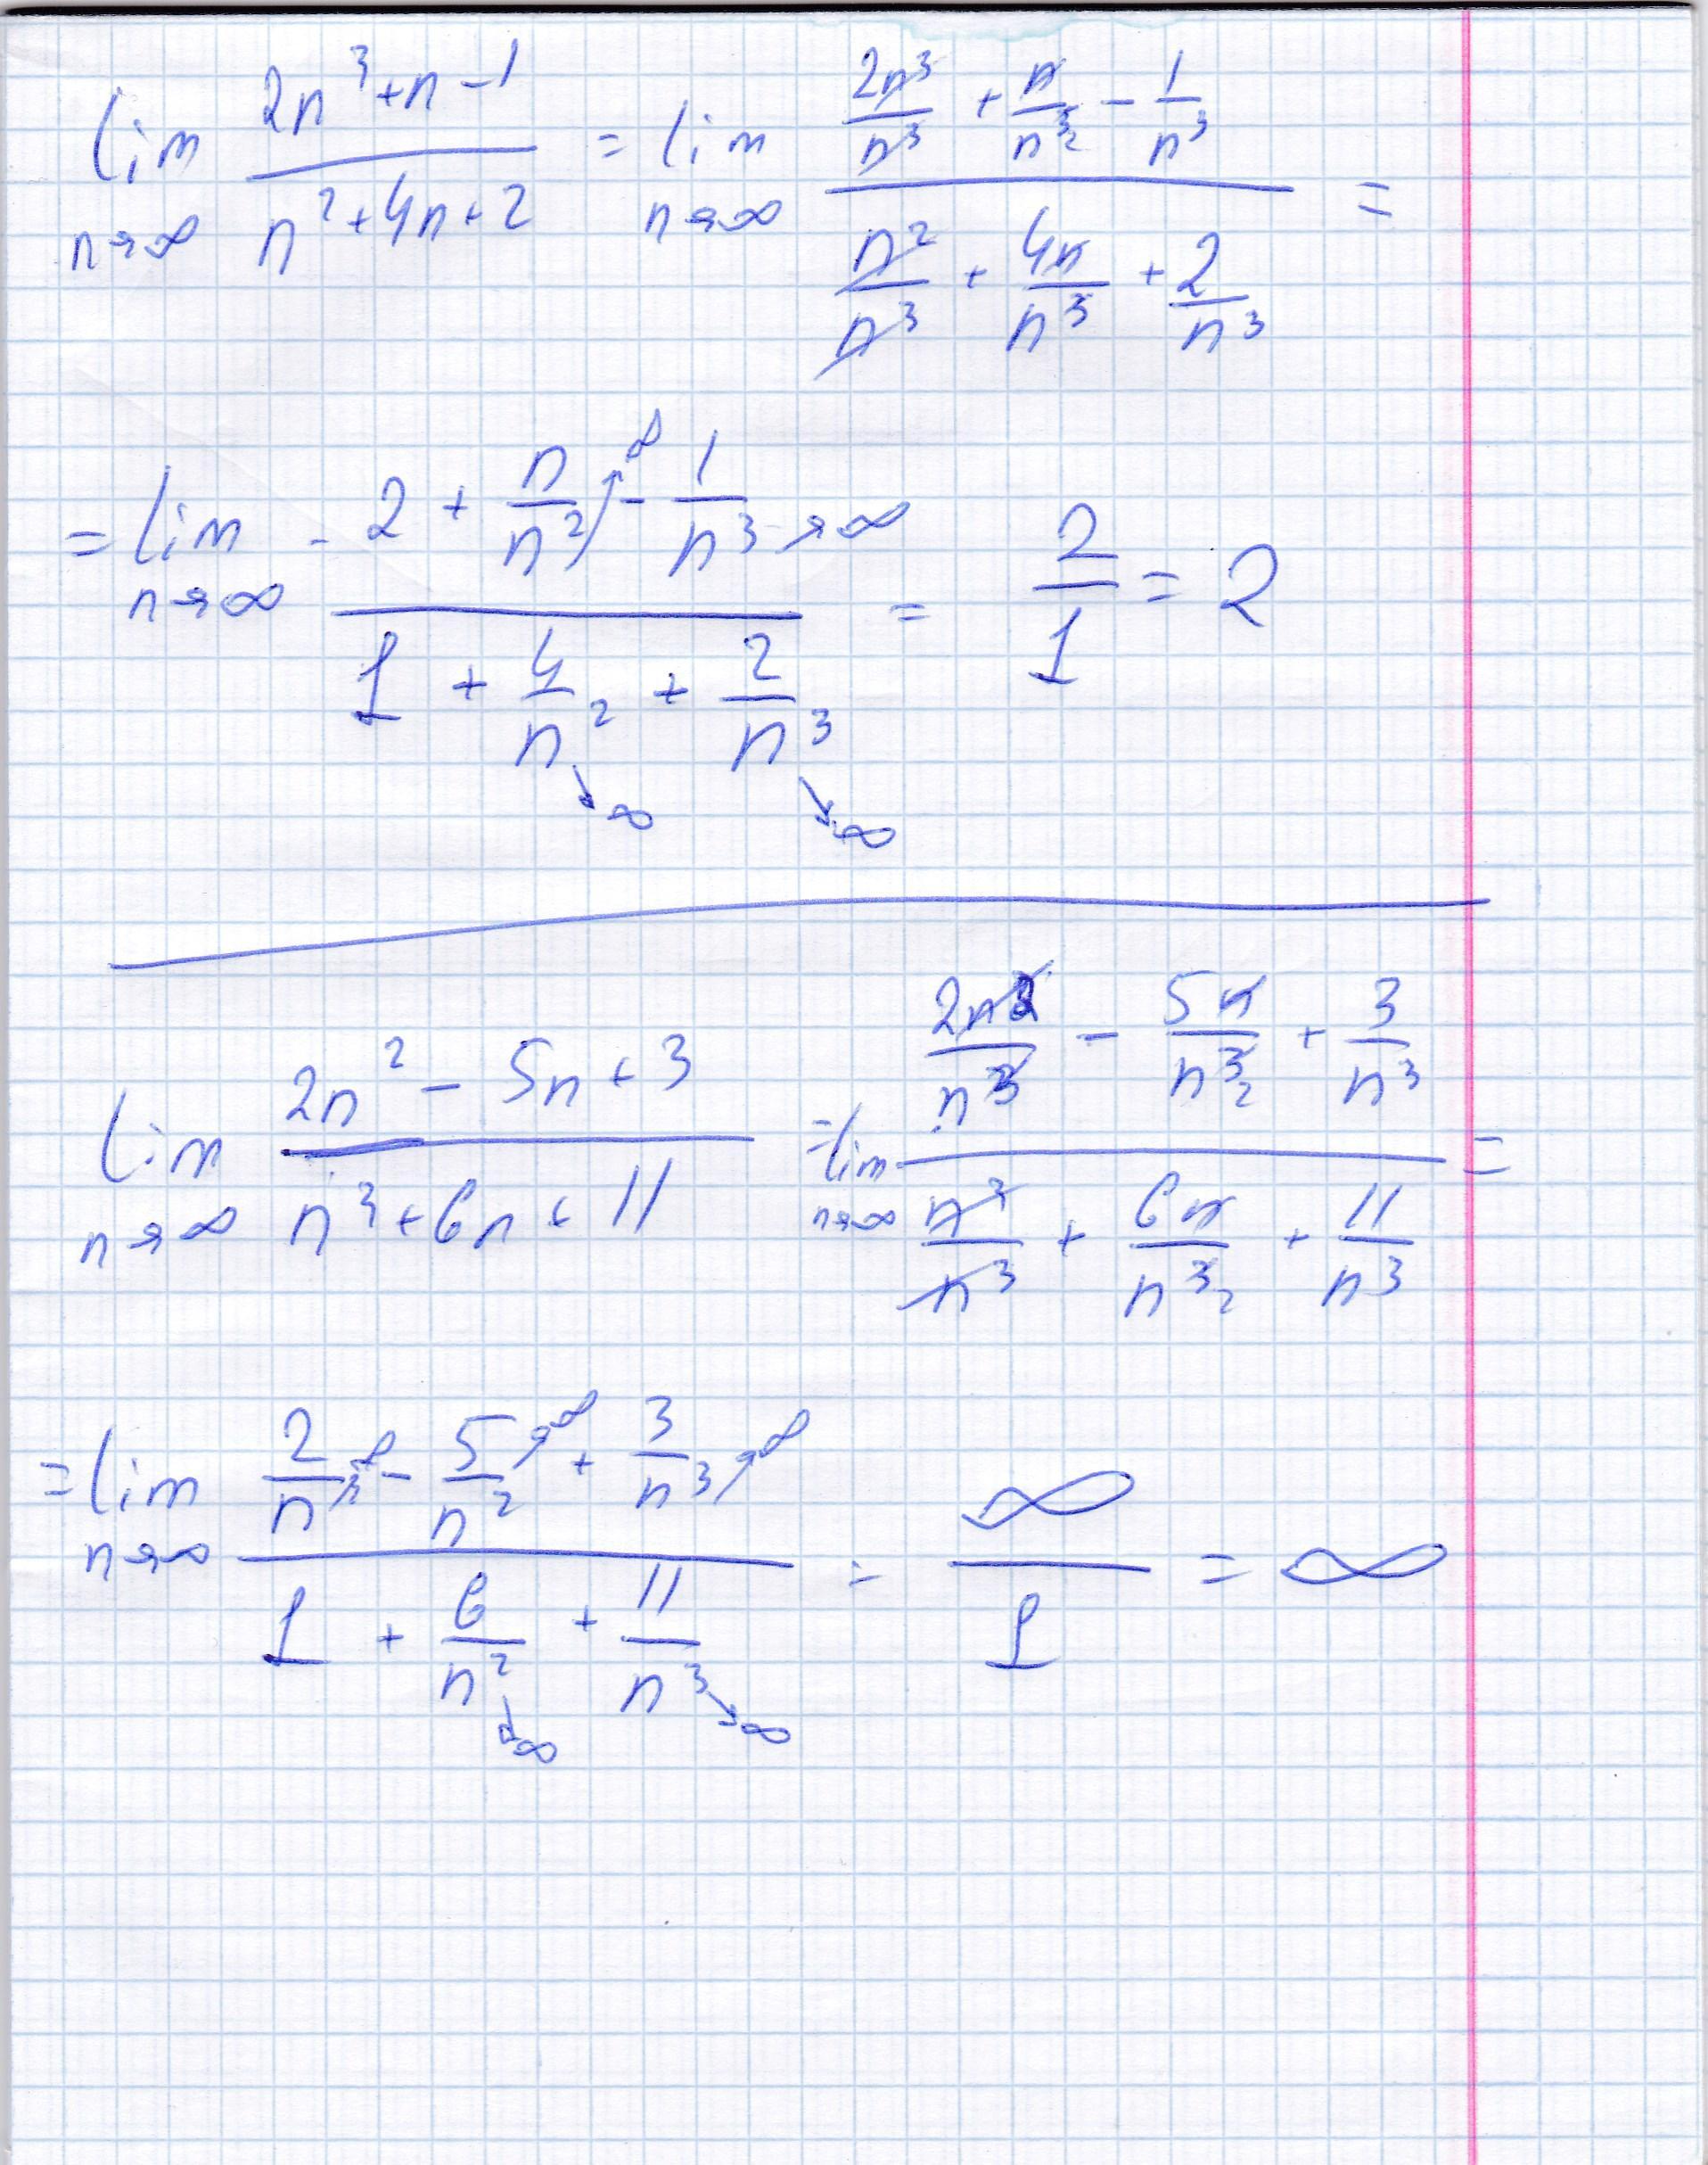 lim n→∞ (2n³+n-1)/(n²+4n+2) = lim n→∞ (2n³/n³ + n/n³₂ - 1/n³)/(n²/n³ + 4n/n³ + 2/n³) =
= lim n→∞ (2 + n/n² →∞ - 1/n³ →∞)/(1 + 4/n² →∞ + 2/n³ →∞) = 2/1 = 2
lim n→∞ (2n² - 5n + 3)/(n³ + 6n + 11) = lim n→∞ (2n²/n³ - 5n/n³₂ + 3/n³)/(n³/n³ + 6n/n³₂ + 11/n³) =
= lim n→∞ (2/n →∞ - 5/n² →∞ + 3/n³ →∞)/(1 + 6/n² →∞ + 11/n³ →∞) = ∞/1 = ∞